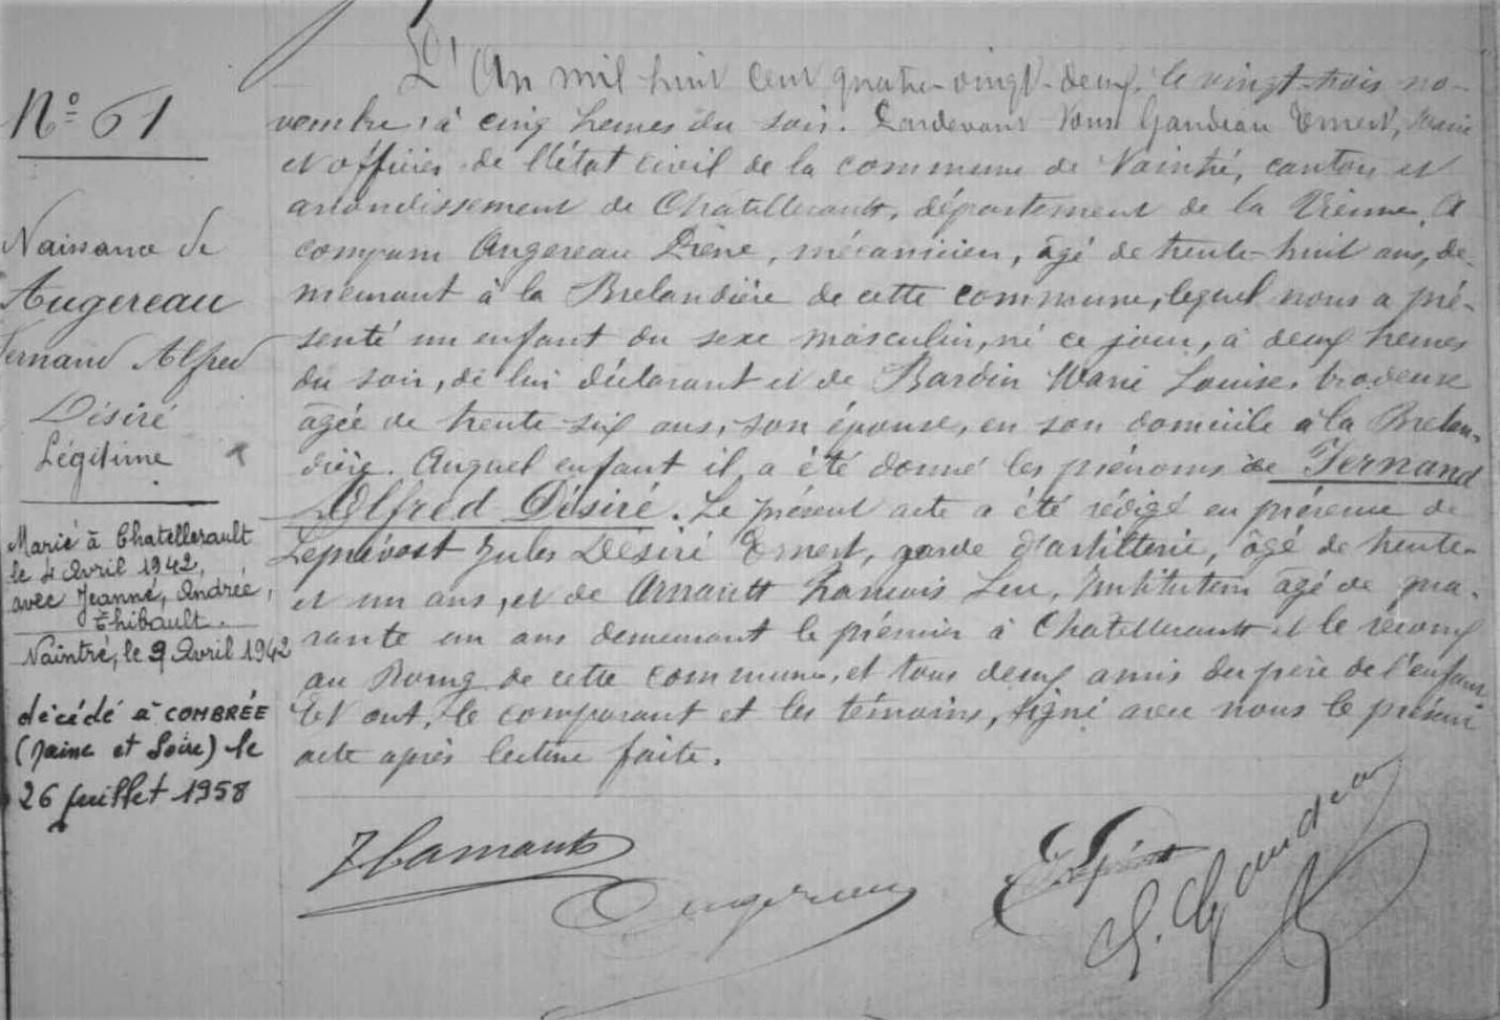 N° 61
Naissance de
Augereau
Fernand Alfred
Désiré
Légitime
Marié à Chatellerault
le 4 Avril 1942,
avec Jeanne, Andrée,
Thibault.
Naintré, le 9 Avril 1942
décédé à COMBRÉE
(Maine et Loire) le
26 Juillet 1958
L'An mil huit cent quatre-vingt-deux, le vingt-trois no-
vembre, à cinq heures du soir. Pardevant Nous Gaudeau Ernest, Maire
et officier de l'état civil de la commune de Naintré, canton et
arrondissement de Chatellerault, département de la Vienne, A
comparu Augereau Pierre, mécanicien, âgé de trente-huit ans, de-
meurant à la Brelandière de cette commune, lequel nous a pré-
senté un enfant du sexe masculin, né ce jour, à deux heures
du soir, de lui déclarant et de Bardin Marie Louise, brodeuse
âgée de trente-six ans, son épouse, en son domicile à la Brelan-
dière. Auquel enfant il a été donné les prénoms de Fernand
Alfred Désiré. Le présent acte a été rédigé en présence de
Leprévost Jules Désiré Ernest, garde d'artillerie, âgé de trente-
et un ans, et de Arnault François Leu, Instituteur âgé de qua-
rante un ans demeurant le premier à Chatellerault et le second
au Bourg de cette commune, et tous deux amis du père de l'enfant
Et ont, le comparant et les témoins, signé avec nous le présent
acte après lecture faite.
Augereau
Leprévost
E. Gaudeau